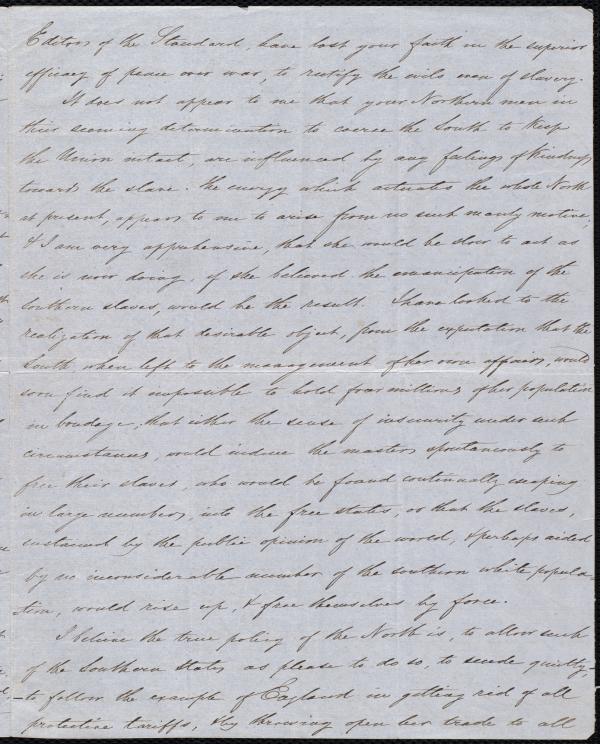 Editors of the Standard, have lost your faith in the superior
efficacy of peace over war, to rectify the evils even of slavery.
It does not appear to me that your Northern men in
their seeming determination to coerce the South to keep
the Union intact, are influenced by any feelings of kindness
towards the slave. The energy which actuates the whole North
at present, appears to me to arise from no such manly motive;
& I am very apprehensive, that she would be slow to act as
she is now doing, if she believed the emancipation of the
Southern slaves, would be the result. I have looked to the
realization of that desirable object, from the expectation that the
South, when left to the management of her own affairs, would
soon find it impossible to hold four millions of her population
in bondage, that either the sense of insecurity under such
circumstances, would induce the masters spontaneously to
free their slaves, who would be found continually escaping
in large numbers, into the free states, or that the slaves,
sustained by the public opinion of the world, & perhaps aided
by no inconsiderable number of the southern white popula-
tion, would rise up, & free themselves by force.
I believe the true policy of the North is, to allow such
of the Southern States as please to do so, to secede quietly,-
-to follow the example of England in getting rid of all
protective tariffs, & by throwing open her trade to all